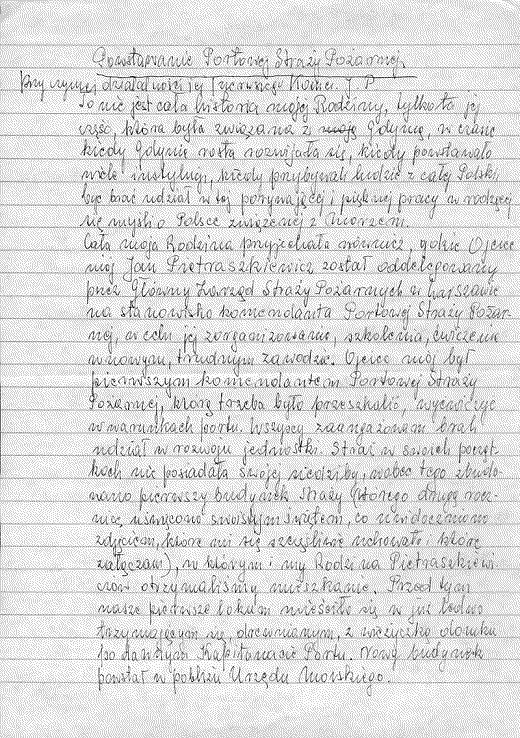 Powstawanie Portowej Straży Pożarnej
przy czynnej działalności jej Komen. J. P
To nie jest cała historia mojej Rodziny, tylko ta jej
część, która była związana z moją Gdynią, w czasie
kiedy Gdynia rosła rozwijała się, kiedy powstawało
wiele instytucji, kiedy przybywali ludzie z całej Polski,
by brać udział w tej porywającej i pięknej pracy w rodzącej
się myśli o Polsce związanej z morzem.
Cała moja Rodzina przyjechała również, gdzie Ojciec
mój Jan Pietraszkiewicz został oddelegowany
przez Główny Zarząd Straży Pożarnych w Warszawie
na stanowisko komendanta Portowej Straży Pożar-
nej, w celu jej zorganizowania, szkolenia, ćwiczenia
w nowym, trudnym zawodzie. Ojciec mój był
pierwszym komendantem Portowej Straży
Pożarnej, którą trzeba było przeszkolić, wyćwiczyć
w warunkach portu. Wszyscy zaangażowani brali
udział w rozwoju jednostki. Straż w swoich począt-
kach nie posiadała swojej siedziby, wobec tego zbudo-
wano pierwszy budynek Straży (którego drugą rocz-
nicę uświęcono swoistym świętem, co uwidoczniono
zdjęciem, które mi się szczęśliwie uchowało i które
załączam), w którym i my Rodzina Pietraszkiewi-
czów otrzymaliśmy mieszkanie. Przed tym
nasze pierwsze lokum mieściło się w już ledwo
trzymającym się, drewnianym, z wieżyczką domku
po dawnym Kapitanacie Portu. Nowy budynek
powstał w pobliżu Urzędu Morskiego.